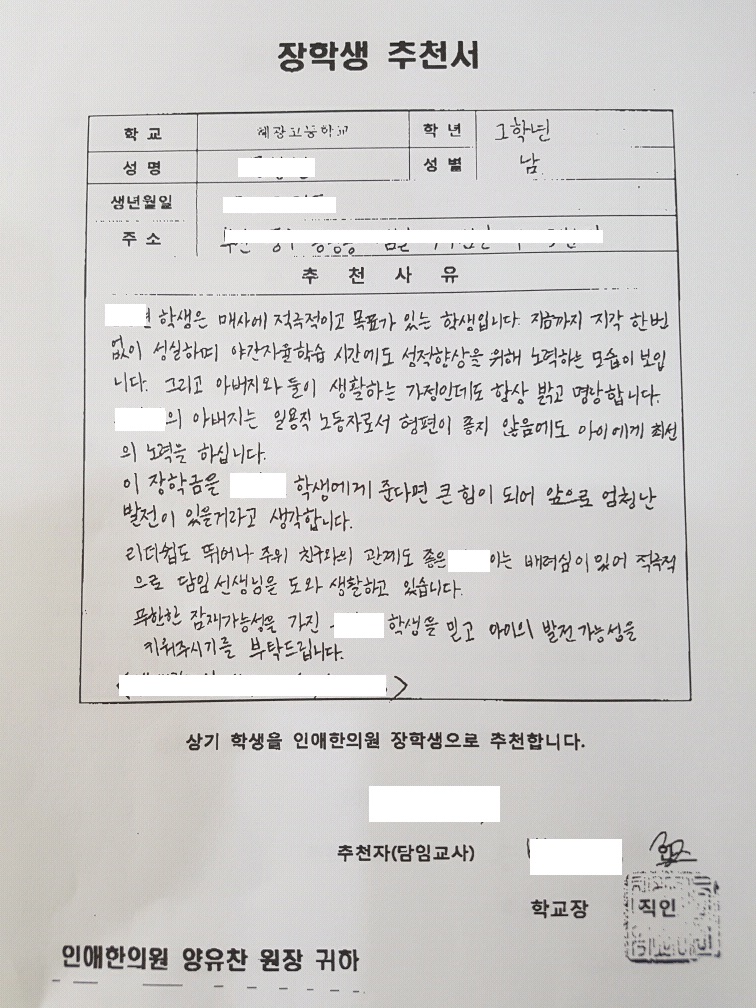 장학생 추천서
학교 혜광고등학교 학년 고학년
성명 성별 남
생년월일
주소
추천사유
학생은 매사에 적극적이고 목표가 있는 학생입니다. 지금까지 지각 한번
없이 성실하며 야간자율학습 시간에도 성적향상을 위해 노력하는 모습이 보입
니다. 그리고 아버지와 둘이 생활하는 가정인데도 항상 밝고 명랑합니다.
의 아버지는 일용직 노동자로서 형편이 좋지 않음에도 아이에게 최선
의 노력을 하십니다.
이 장학금을 학생에게 준다면 큰 힘이 되어 앞으로 엄청난
발전이 있을거라고 생각합니다.
리더쉽도 뛰어나 주위 친구와의 관계도 좋은 이는 배려심이 있어 적극적
으로 담임 선생님을 도와 생활하고 있습니다.
무한한 잠재가능성을 가진 학생을 믿고 아이의 발전가능성을
키워주시기를 부탁드립니다.
상기 학생을 인애한의원 장학생으로 추천합니다.
추천자(담임교사)
학교장 직인
인애한의원 양유찬 원장 귀하